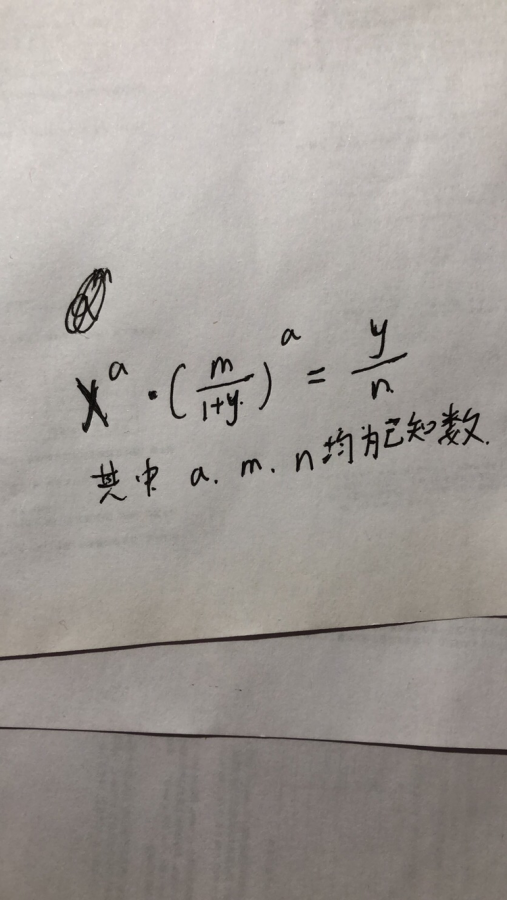 x^a · (m/(1+y))^a = y/n
其中 a. m. n 均为已知数.